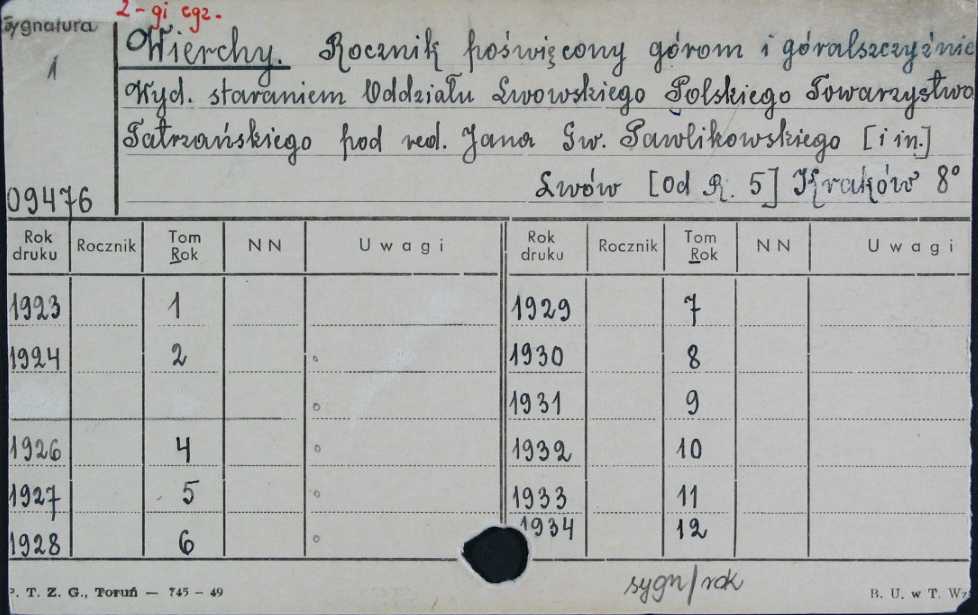 2-gi egz.
Sygnatura
1
09476
Wierchy. Rocznik poświęcony górom i góralszczyźnie
Wyd. staraniem Oddziału Lwowskiego Polskiego Towarzystwa
Tatrzańskiego pod red. Jana Gw. Pawlikowskiego [i in.]
Lwów [od R. 5] Kraków 8°
Rok druku Rocznik Tom Rok NN Uwagi Rok druku Rocznik Tom Rok NN Uwagi
1923 1 1929 7
1924 2 1930 8
1931 9
1926 4 1932 10
1927 5 1933 11
1928 6 1934 12
sygn/rok
P. T. Z. G., Toruń — 745 – 49
B. U. w T.